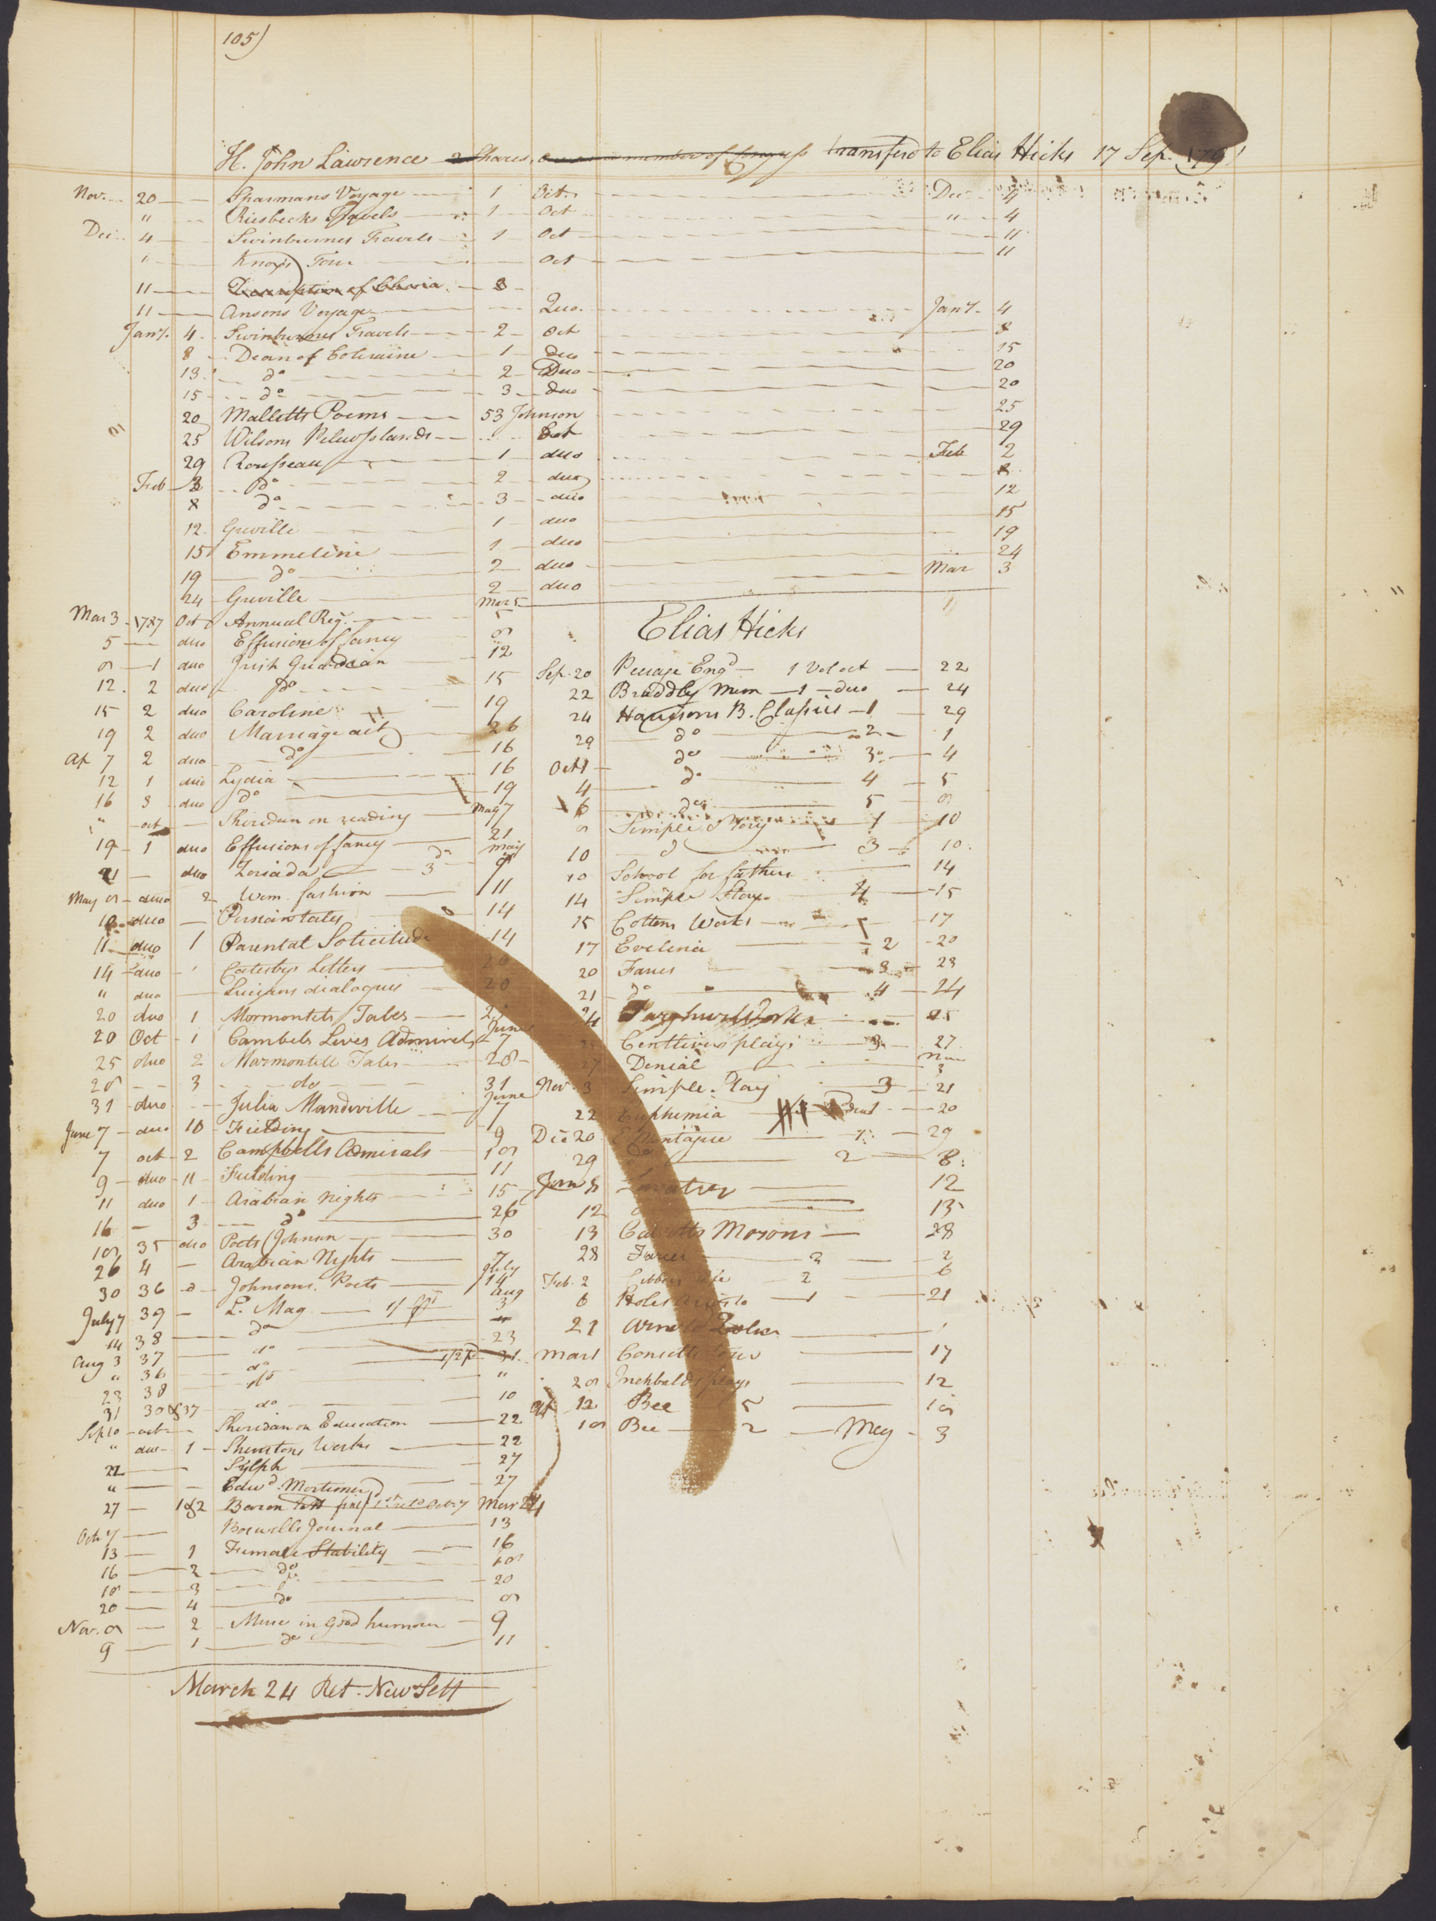 105)
H. John Lawrence 2 Shares transferd to Elias Hicks 17 Sep. 1791
Nov. 20 Sparmans Voyage 1 Oct. Dec 4
" Riesbecks Travels 1 Oct " 4
Dec. 4 Swinburnes Travels 1 Oct 11
" Knox's Tour Oct 11
11 Description of 3
11 Ansons Voyage Duo. Jany. 4
Jany. 4 Swinburnes Travels 2 Oct 8
8 Dean of Coleraine 1 duo 15
13 do 2 Duo 20
15 do 3 duo 20
20 Malletts Poems 53 Johnson 25
25 Wilsons Pelew Islands Oct 29
29 Rousseau 1 duo Feb 2
Feb 2 do 2 duo 8
8 do 3 duo 12
12 Greville 1 duo 15
15 Emmeline 1 duo 19
19 do 2 duo 24
24 Greville 2 duo Mar 3
Mar 3 1787 Oct Annual Reg. Mar 5
5 duo Effusions of fancy 8
8 1 duo Irish Guardian 12
12 2 duo do 15
15 2 duo Caroline 19
19 2 duo Marriage act 26
Ap 7 2 duo do 16
12 1 duo Lydia 16
16 3 duo do 19
" oct Sheridan on reading May 7
19 1 duo Effusions of fancy 21
21 duo Zoriada do 3 May 8
May 8 duo 2 Wom. fashion 11
10 duo Persian tales 14
11 duo 1 Parental Solicitude 14
14 duo 1 Catesbys Letters 20
" duo Lucians dialogues 20
20 duo 1 Mormontels Tales
20 Oct 1 Cambels Lives Admirels June 7
25 duo 2 Marmontell Tales 28
28 3 do 31
31 duo Julia Mandeville June 7
June 7 duo 10 Fielding 9
7 oct 2 Campbells Admirals 18
9 duo 11 Fielding 11
11 duo 1 Arabian nights 15
16 3 do 26
18 35 duo Poets Johnson 30
26 4 Arabian Nights 7
30 36 Johnsons Poets July 14
July 7 39 L. Mag Aug 3
14 38 do
Aug 3 37 do 23
" 36 do 31
23 38 do "
31 30 & 37 do 10
Sep 10 oct Sheridan on Education 22
" duo 1 Shenstons Works 22
22 Sylph 27
" Edwd. Mortimer 27
27 1&2 Baron Mar 24
Oct 7 Boswells Journal 13
13 1 Female Stability 16
16 2 do 18
18 3 20
20 4 do 8
Nov. 8 2 Muse in good humour 9
9 1 do 11
March 24 Ret. New Sett
Elias Hicks
Sep. 20 Peerage Engd 1 Vol oct 22
22 Braddby Mem 1 duo 24
24 Harrisons B. Classics 1 29
29 do 2 1
Oct 1 do 3 4
4 do 4 5
6 do 5 8
8 Simple Story 1 10
10 3 10
10 School for fathers 14
14 Simple Story 4 15
15 Cottons Works 17
17 Evelina 2 20
20 Farces 3 23
21 do 4 24
24 25
Centlivres plays 3 27
27 Denial Nov 3
Nov. 3 Simple Story 3 21
22 Euphemia 20
Dec 20 Montague 29
29 2 8
Jan 8 Lavater 12
12 13
13 28
28 Farces 2
Feb. 2 2 6
6 1 21
21
Mar 1 17
28 Inchbalds plays 12
Ap 12 Bee 5 18
18 Bee 2 May 3